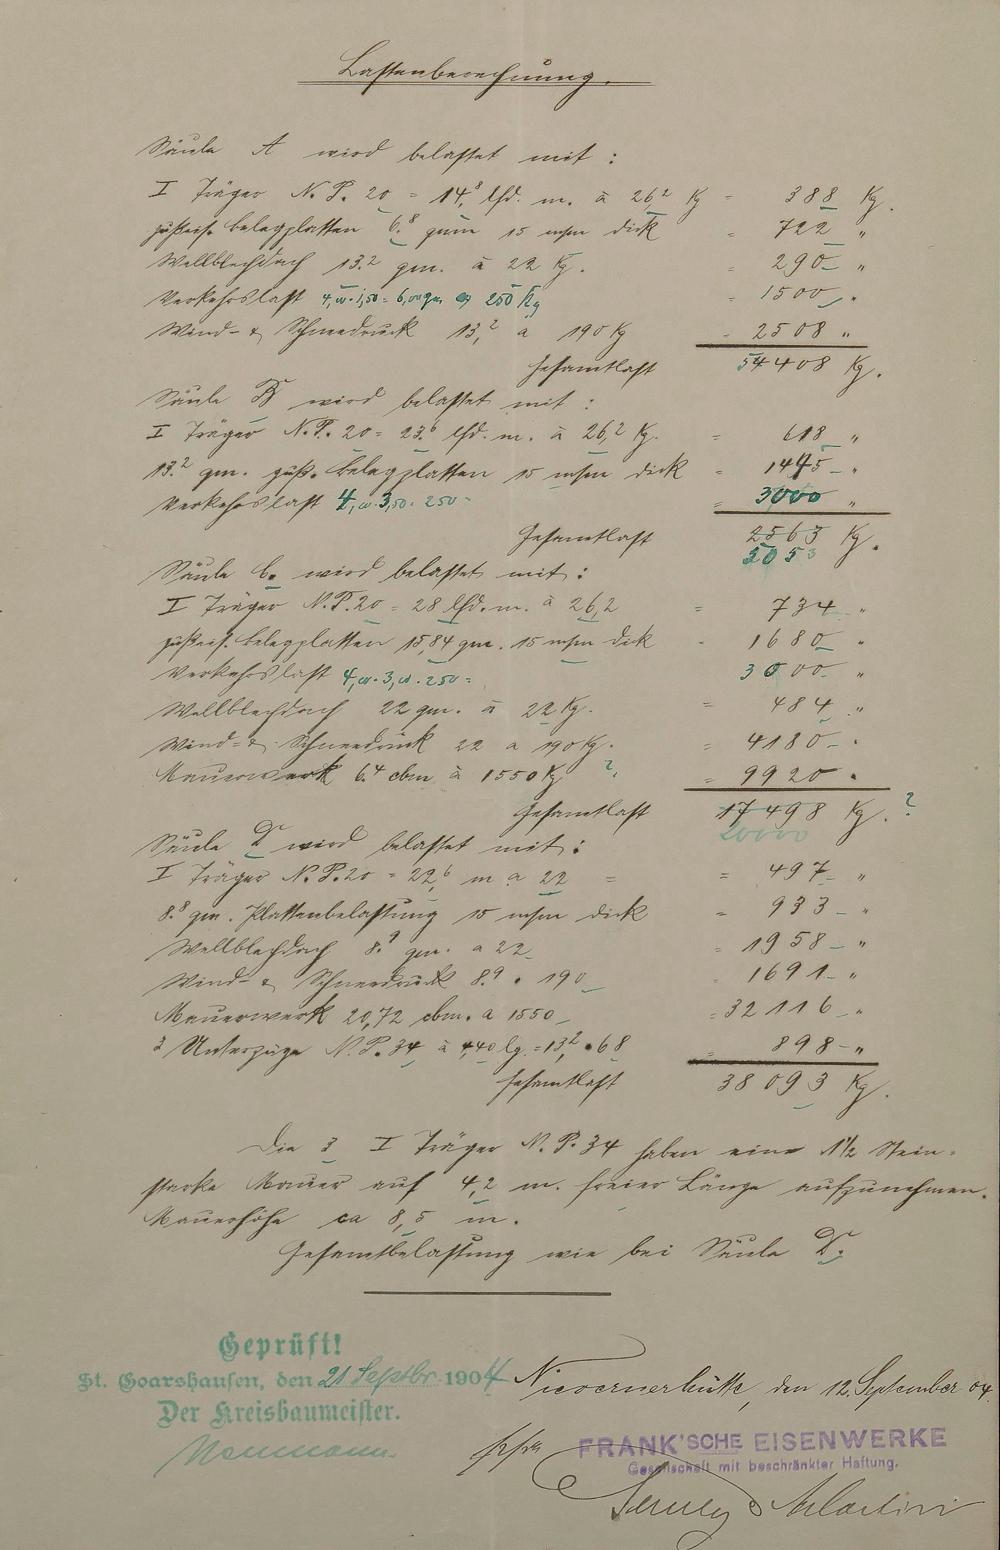 Lastenberechnung.
Säule A wird belastet mit:
I Träger N. P. 20 = 14,8 lfd. m. à 26,2 Kg = 388 Kg.
gußeis. Belegplatten 6,8 qm 15 m/m dick = 722 "
Wellblechdach 13,2 qm. à 22 Kg. = 290 "
Verkehrslast 4,00·1,50 = 6,00 qm à 250 Kg = 1500 "
Wind- & Schneedruck 13,2 a 190 Kg = 2508 "
Gesamtlast 5408 Kg.
Säule B wird belastet mit:
I Träger N. P. 20 = 23,6 lfd. m. à 26,2 Kg. = 618 "
13,2 qm. guß. Belegplatten 15 m/m dick = 1445 "
Verkehrslast 4,00·3,00·250 = 3000 "
Gesamtlast 2563 Kg.
5053
Säule C. wird belastet mit:
I Träger N. P. 20 = 28 lfd. m. à 26,2 = 734 "
gußeis. Belegplatten 15,84 qm. 15 m/m dick = 1680 "
Verkehrslast 4,00·3,00·250 = 3000 "
Wellblechdach 22 qm. à 22 Kg. = 484 "
Wind- & Schneedruck 22 a 190 Kg. = 4180 "
Mauerwerk 6,4 cbm à 1550 Kg ? = 9920 "
Gesamtlast 17498 Kg. ?
20000
Säule D wird belastet mit:
I Träger N. P. 20 = 22,6 m a 22 = = 497 "
8,8 qm. Plattenbelastung 15 m/m dick = 933 "
Wellblechdach 8,9 qm. a 22 = 1958 "
Wind- & Schneedruck 8,9 · 190 = 1691 "
Mauerwerk 20,72 cbm. a 1550 = 32116 "
3 Unterzüge N. P. 34 à 4,40 lg. = 13,2 · 68 = 898 "
Gesamtlast 38093 Kg.
Die 3 I Träger N. P. 34 haben eine 1½ Stein-
starke Mauer auf 4,2 m. freier Länge aufzunehmen.
Mauerhöhe ca 8,5 m.
Gesamtbelastung wie bei Säule D.
Geprüft!
St. Goarshausen, den 21 Septbr. 1904
Der Kreisbaumeister.
Nievernerhütte, den 12. September 04.
ppa
FRANK'SCHE EISENWERKE
Gesellschaft mit beschränkter Haftung.